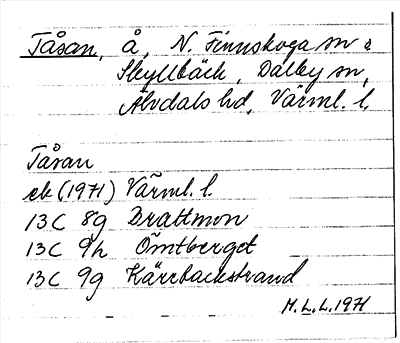 Tåsan, å, N. Finnskoga sn o
Skyllbäck, Dalby sn,
Älvdals hd, Värml. l.
Tåsan
ek (1971) Värml. l.
13C 8g Brattmon
13C 9h Örntberget
13C 9g Kärrbackstrand
M.L.L. 1971